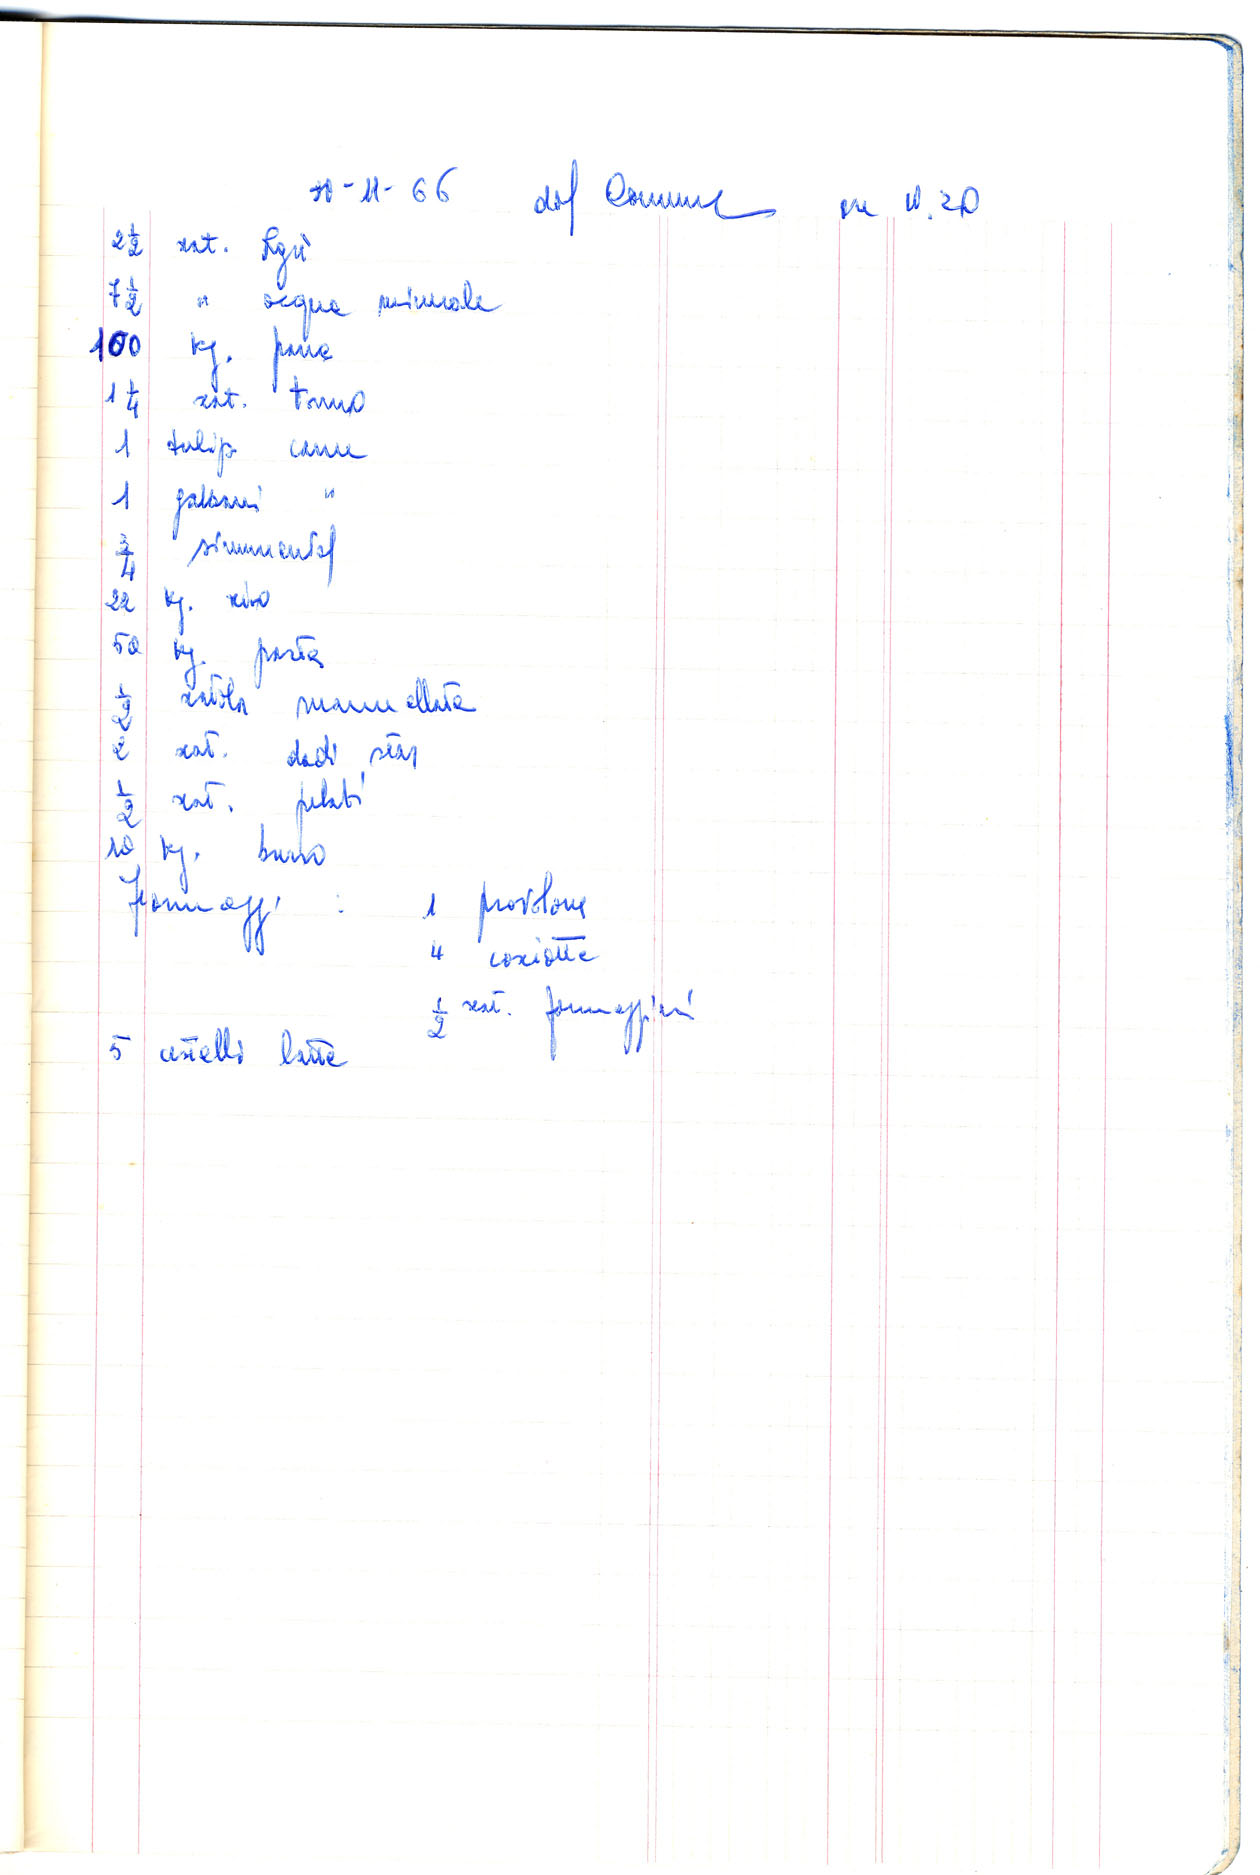 10-11-66 dal Comune ore 10.20
2 1/2 scat. Ligù
7 1/2 " acqua minerale
100 kg. pane
1 1/4 scat. tonno
1 tulip carne
1 galbani "
3/4 simmental
22 kg. riso
50 kg. pasta
1/2 scatola marmellata
2 scat. dadi star
1/2 scat. pelati
10 kg. burro
Formaggi : 1 provolone
4 caciotte
1/2 scat. formaggini
5 cestelli latte